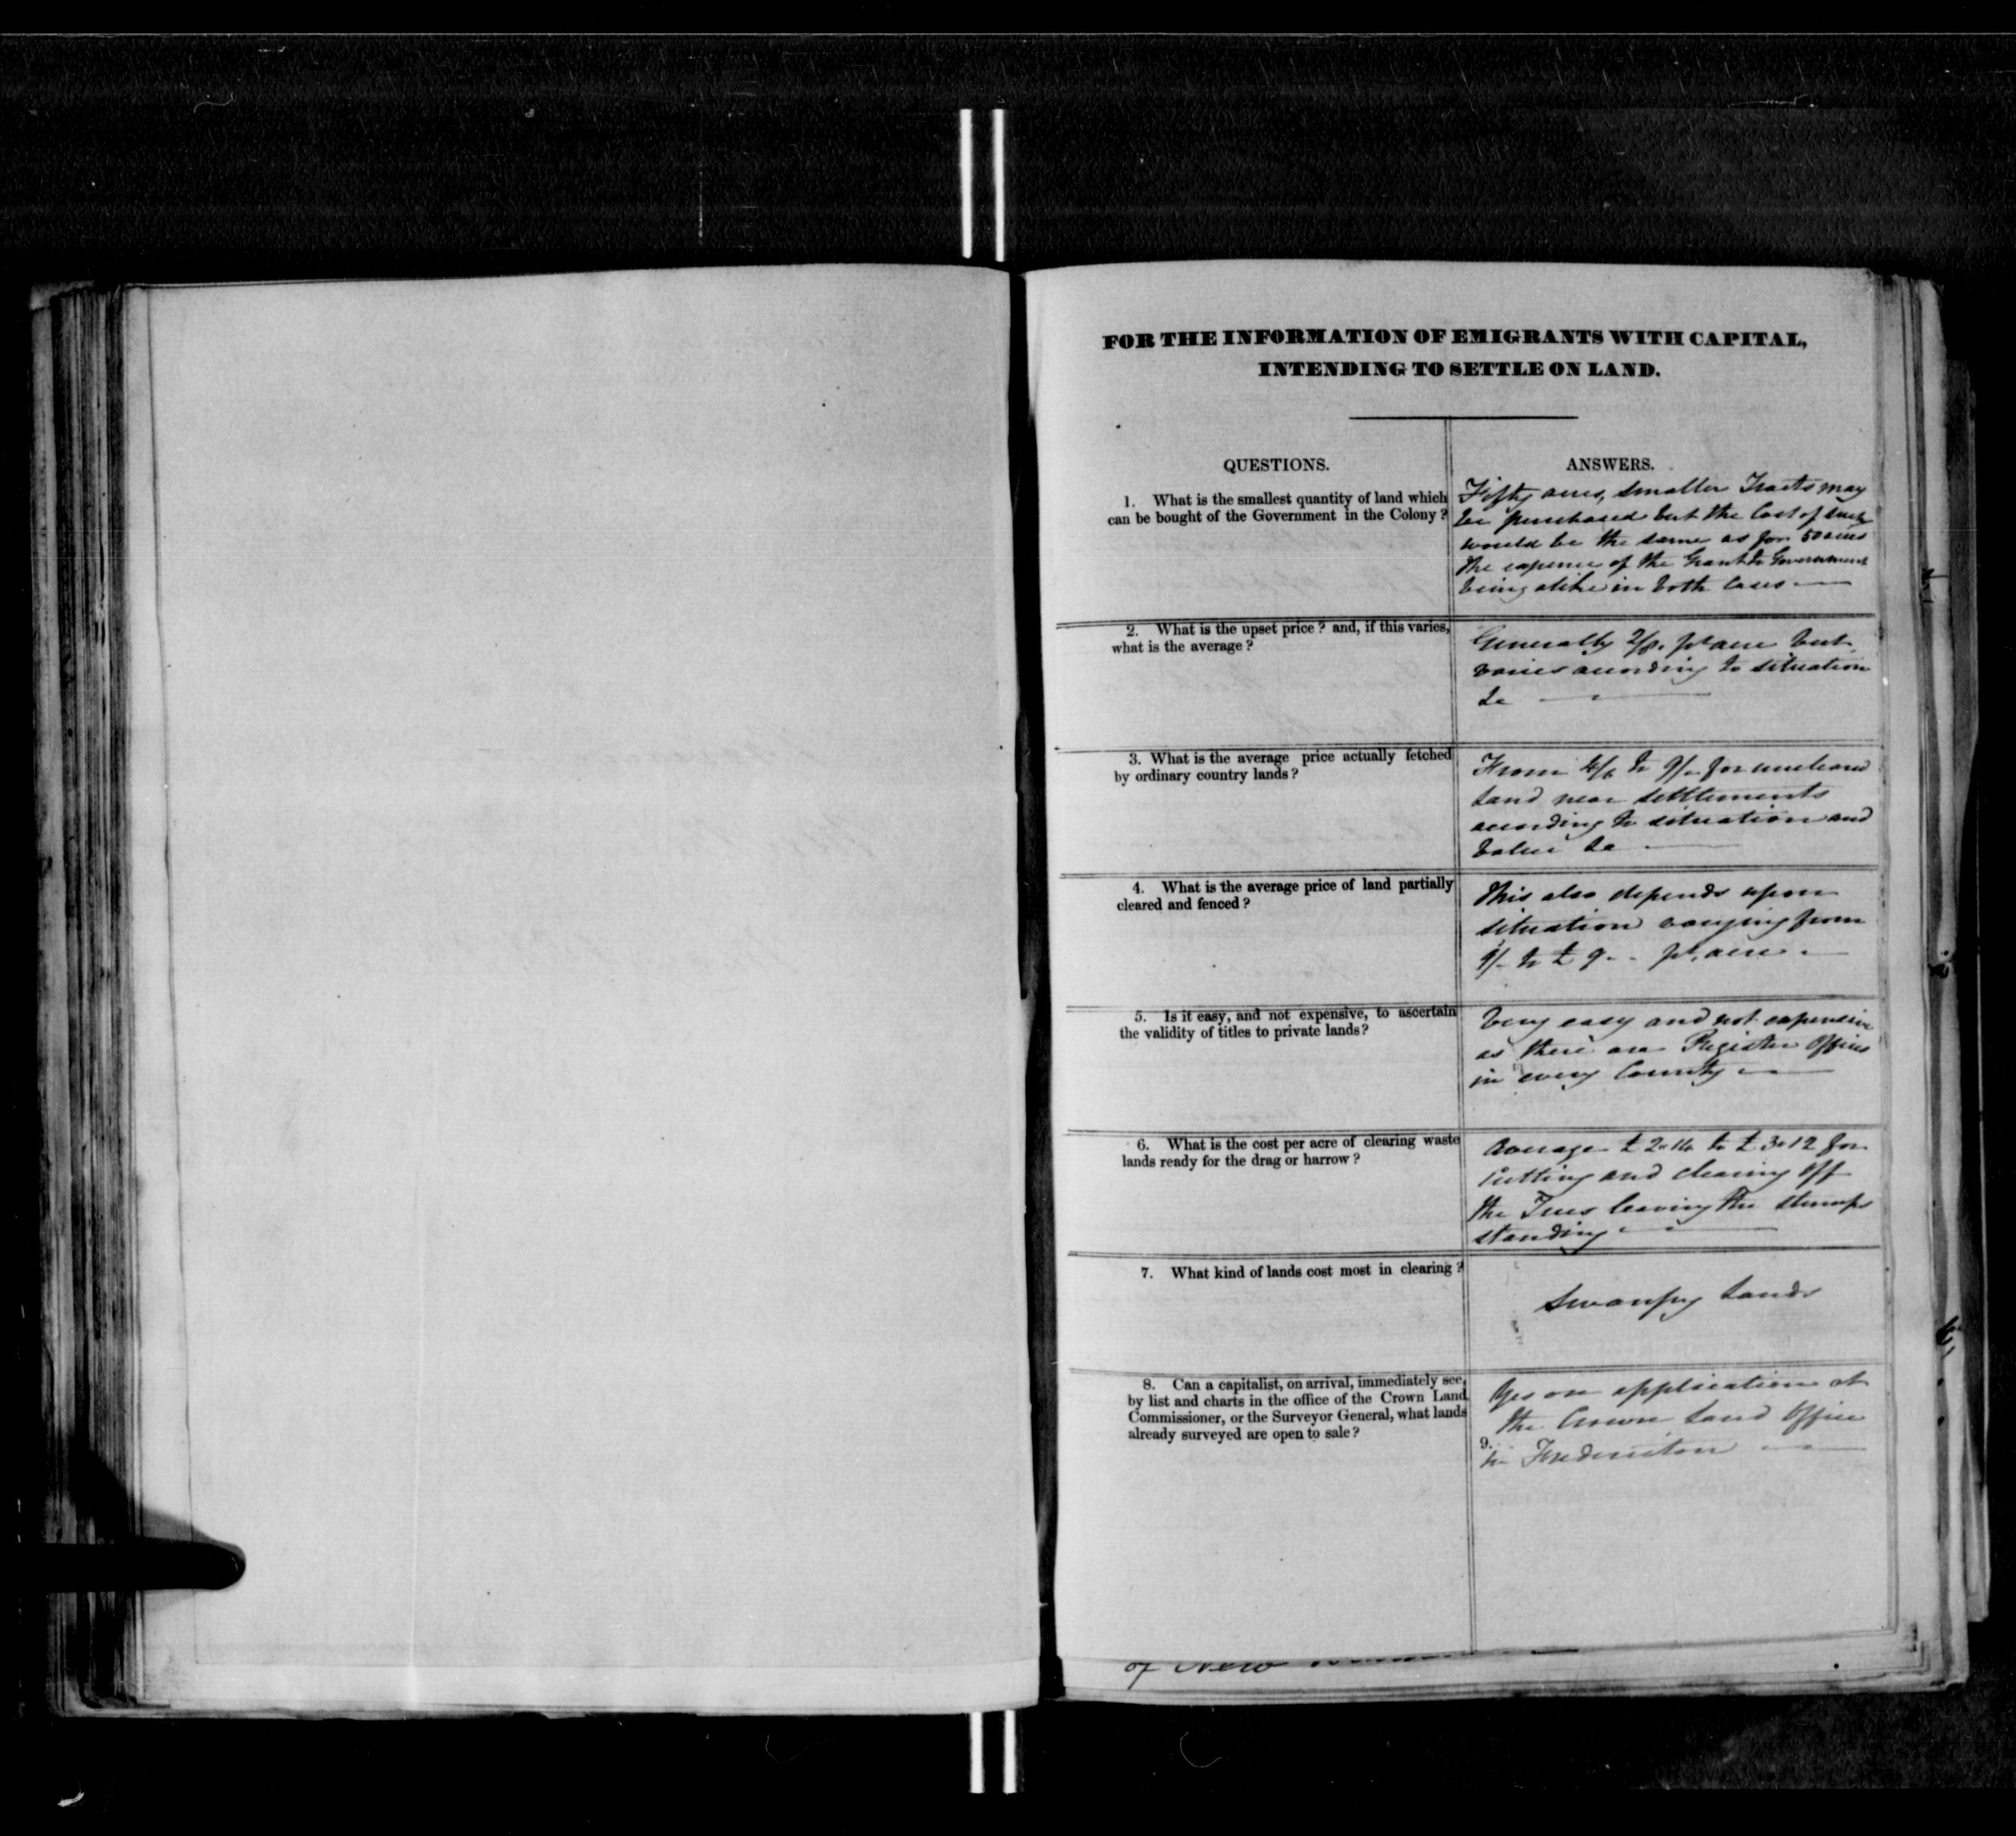 FOR THE INFORMATION OF EMIGRANTS WITH CAPITAL,
INTENDING TO SETTLE ON LAND.
QUESTIONS.
ANSWERS.
1. What is the smallest quantity of land which
can be bought of the Government in the Colony?
Fifty acres, smaller Tracts may
be purchased but the Cost of such
would be the same as for 50 acres
the expense of the Grant to Government
being alike in both Cases
2. What is the upset price? and, if this varies,
what is the average?
Generally pr acre but
varies according to situation
&c
3. What is the average price actually fetched
by ordinary country lands?
From to 9/- for uncleared
land near settlements
according to situation and
value &c
4. What is the average price of land partially
cleared and fenced?
This also depends upon
situation varying from
9/- to £ 9 - - pr. acre
5. Is it easy, and not expensive, to ascertain
the validity of titles to private lands?
Very easy and not expensive
as there are Register Offices
in every County
6. What is the cost per acre of clearing waste
lands ready for the drag or harrow?
Average £ 2.14 to £ 3.12 for
Cutting and clearing off
the Trees leaving the stumps
standing
7. What kind of lands cost most in clearing?
Swampy lands
8. Can a capitalist, on arrival, immediately see,
by list and charts in the office of the Crown Land
Commissioner, or the Surveyor General, what lands
already surveyed are open to sale?
Yes on application at
the Crown Land Office
9.
in Fredericton
of New